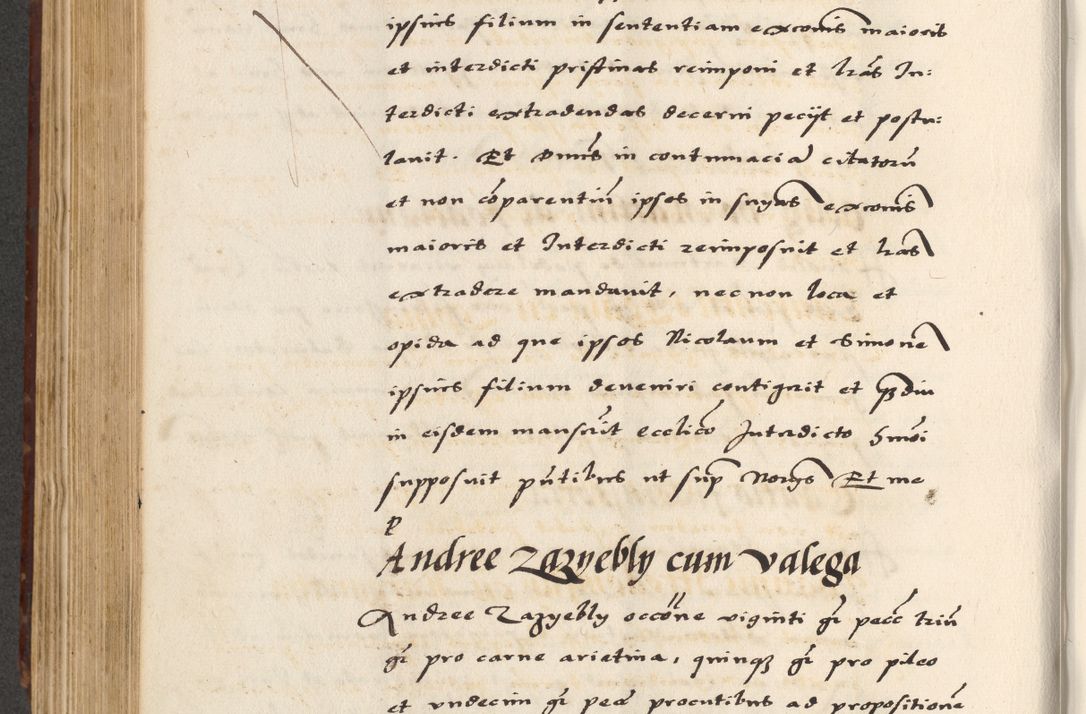 ipsius filium in sententiam excomis maioris
et interdicti pristinas reimponi et lras In:
terdicti extradendas decerni pecijt et postu:
lauit. Et Dnus in contumaciā citatorū
et non cōparentiū ipsos in suyas excomis
maioris et Interdicti reimposuit et lras
extradere mandauit, necnon loca et
opida ad que ipsos Nicolaum et Simonē
ipsius filium deueniri contigerit et qʒdiu
in eisdem manserīt ecclico Interdicto hmōi
supposuit pntibus ut sup Norys Et me
P
Andree Zazyebly cum Valega
Andree Zazyebly occōne viginti gr pecc triū
gr pro carne arietina, quinqʒ gr pro pileo
et vndecim gr pecc procutibus ad propositionē